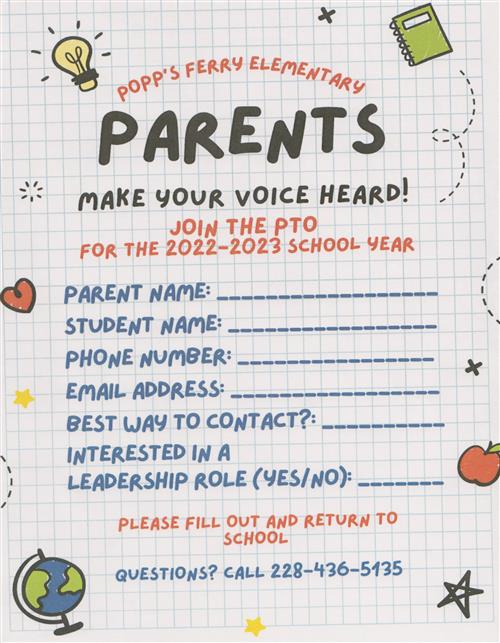 POPP'S FERRY ELEMENTARY
PARENTS
MAKE YOUR VOICE HEARD!
JOIN THE PTO
FOR THE 2022-2023 SCHOOL YEAR
PARENT NAME: _________________
STUDENT NAME: ________________
PHONE NUMBER: _______________
EMAIL ADDRESS: ________________
BEST WAY TO CONTACT?: _________
INTERESTED IN A
LEADERSHIP ROLE (YES/NO): ______
PLEASE FILL OUT AND RETURN TO
SCHOOL
QUESTIONS? CALL 228-436-5135